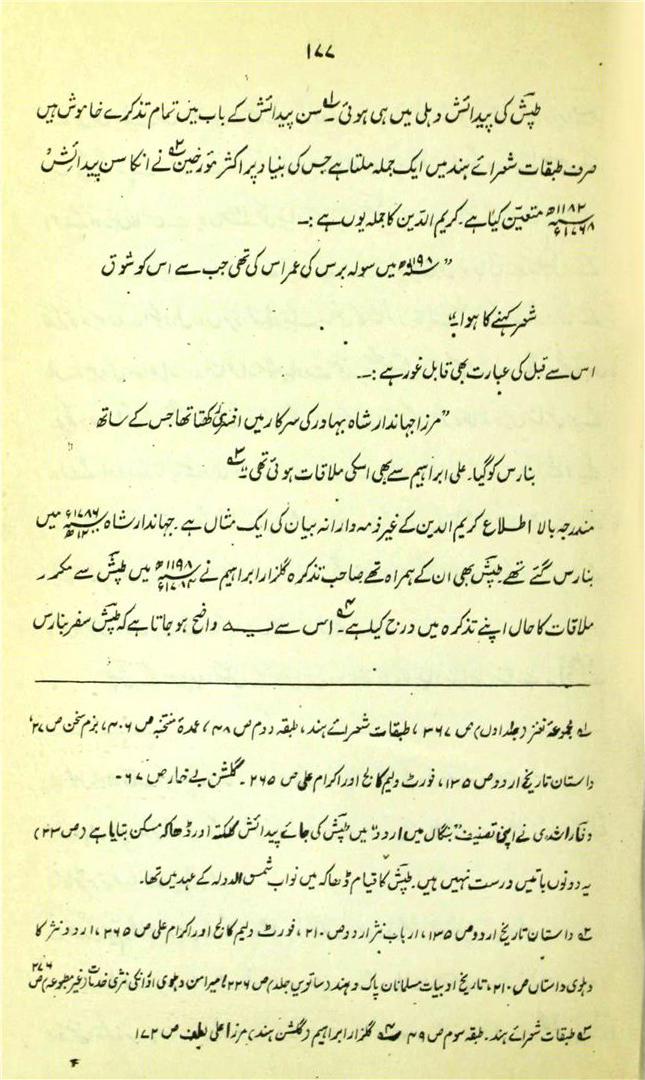 ۱۷۷
طپشؔ کی پیدائش دہلی میں ہی ہوئی۔ ۱؎ سن پیدائش کے باب میں تمام تذکرے خاموش ہیں
صرف طبقات شعرائے ہند میں ایک جملہ ملتا ہے جس کی بنیاد پر اکثر مؤرخین ۲؎ نے انکا سن پیدائش
۱۱۸۲ھ ۱۷۶۸ء متعیّن کیا ہے۔ کریم الدّین کا جملہ یوں ہے :۔
”۱۱۹۸ھ میں سولہ برس کی عمر اس کی تھی جب سے اس کو شوق
شعر کہنے کا ہوا۔“
اس سے قبل کی عبارت بھی قابل غور ہے :۔
”مرزا جہاندار شاہ بہادر کی سرکار میں افسری رکھتا تھا جس کے ساتھ
بنارس کو گیا۔ علی ابراہیم سے بھی اسکی ملاقات ہوئی تھی۔“ ۳؎
مندرجہ بالا اطلاع کریم الدین کے غیر ذمہ دارانہ بیان کی ایک مثال ہے۔ جہاندار شاہ ۱۷۸۶ء میں
بنارس گئے تھے طپشؔ بھی ان کے ہمراہ تھے صاحب تذکرہ گلزار ابراہیم نے ۱۱۹۸ھ ۱۷۸۴ء میں طپشؔ سے مکرر
ملاقات کا حال اپنے تذکرہ میں درج کیا ہے ۴؎۔ اس سے یہ واضح ہو جاتا ہے کہ طپشؔ سفر بنارس
۱؎ مجموعۂ نغز (جلد اول) ص ۳۶۷، طبقات شعرائے ہند، طبقہ دوم ص ۴۸، عمدۂ منتخبہ ص ۴۰۶، بزم سخن ص ۲۷،
داستان تاریخ اردو ص ۱۳۵، فورٹ ولیم کالج اور اکرام علی ص ۲۶۵۔ گلشن بے خار ص ۶۷۔
وفا راشدی نے اپنی تصنیف ”بنگال میں اردو“ میں طپشؔ کی جائے پیدائش کلکتہ اور ڈھاکہ مسکن بتایا ہے (ص ۲۳)
یہ دونوں باتیں درست نہیں ہیں۔ طپشؔ کا قیام ڈھاکہ میں نواب شمس الدولہ کے عہد میں تھا۔
۲؎ داستان تاریخ اردو ص ۱۳۵، ارباب نثر اردو ص ۲۱۰، فورٹ ولیم کالج اور اکرام علی ص ۲۶۵، اردو نثر کا
دہلوی داستاں ص ۲۱۰، تاریخ ادبیات مسلمانان پاک و ہند (ساتویں جلد) ص ۲۳۶ میرامن دہلوی اور انکی نثری خدمات (غیر مطبوعہ) ص ۲۷۶
۳؎ طبقات شعرائے ہند۔ طبقہ سوم ص ۴۹ ۴؎ گلزار ابراہیم (گلشن ہند) مرزا علی لطف ص ۱۷۲